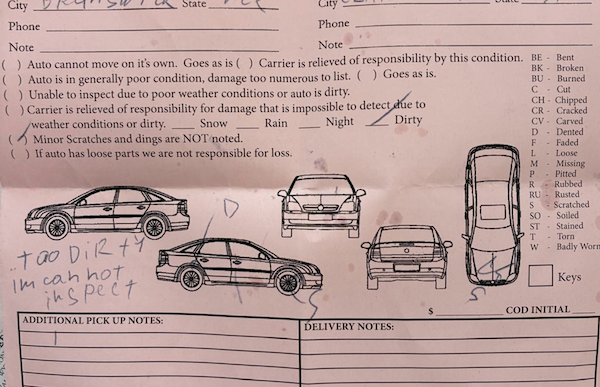 City State City State
Phone Phone
Note Note
( ) Auto cannot move on it's own. Goes as is ( ) Carrier is relieved of responsibility by this condition.
( ) Auto is in generally poor condition, damage too numerous to list. ( ) Goes as is.
( ) Unable to inspect due to poor weather conditions or auto is dirty.
( ) Carrier is relieved of responsibility for damage that is impossible to detect due to
weather conditions or dirty. ___ Snow ___ Rain ___ Night ___ Dirty
(✓) Minor Scratches and dings are NOT noted.
( ) If auto has loose parts we are not responsible for loss.
BE - Bent
BK - Broken
BU - Burned
C - Cut
CH - Chipped
CR - Cracked
CV - Carved
D - Dented
F - Faded
L - Loose
M - Missing
P - Pitted
R - Rubbed
RU - Rusted
S - Scratched
SO - Soiled
ST - Stained
T - Torn
W - Badly Worn
Keys
D
too DiRty
im can not
inspect
S
S
$ ___ COD INITIAL ___
ADDITIONAL PICK UP NOTES: DELIVERY NOTES: